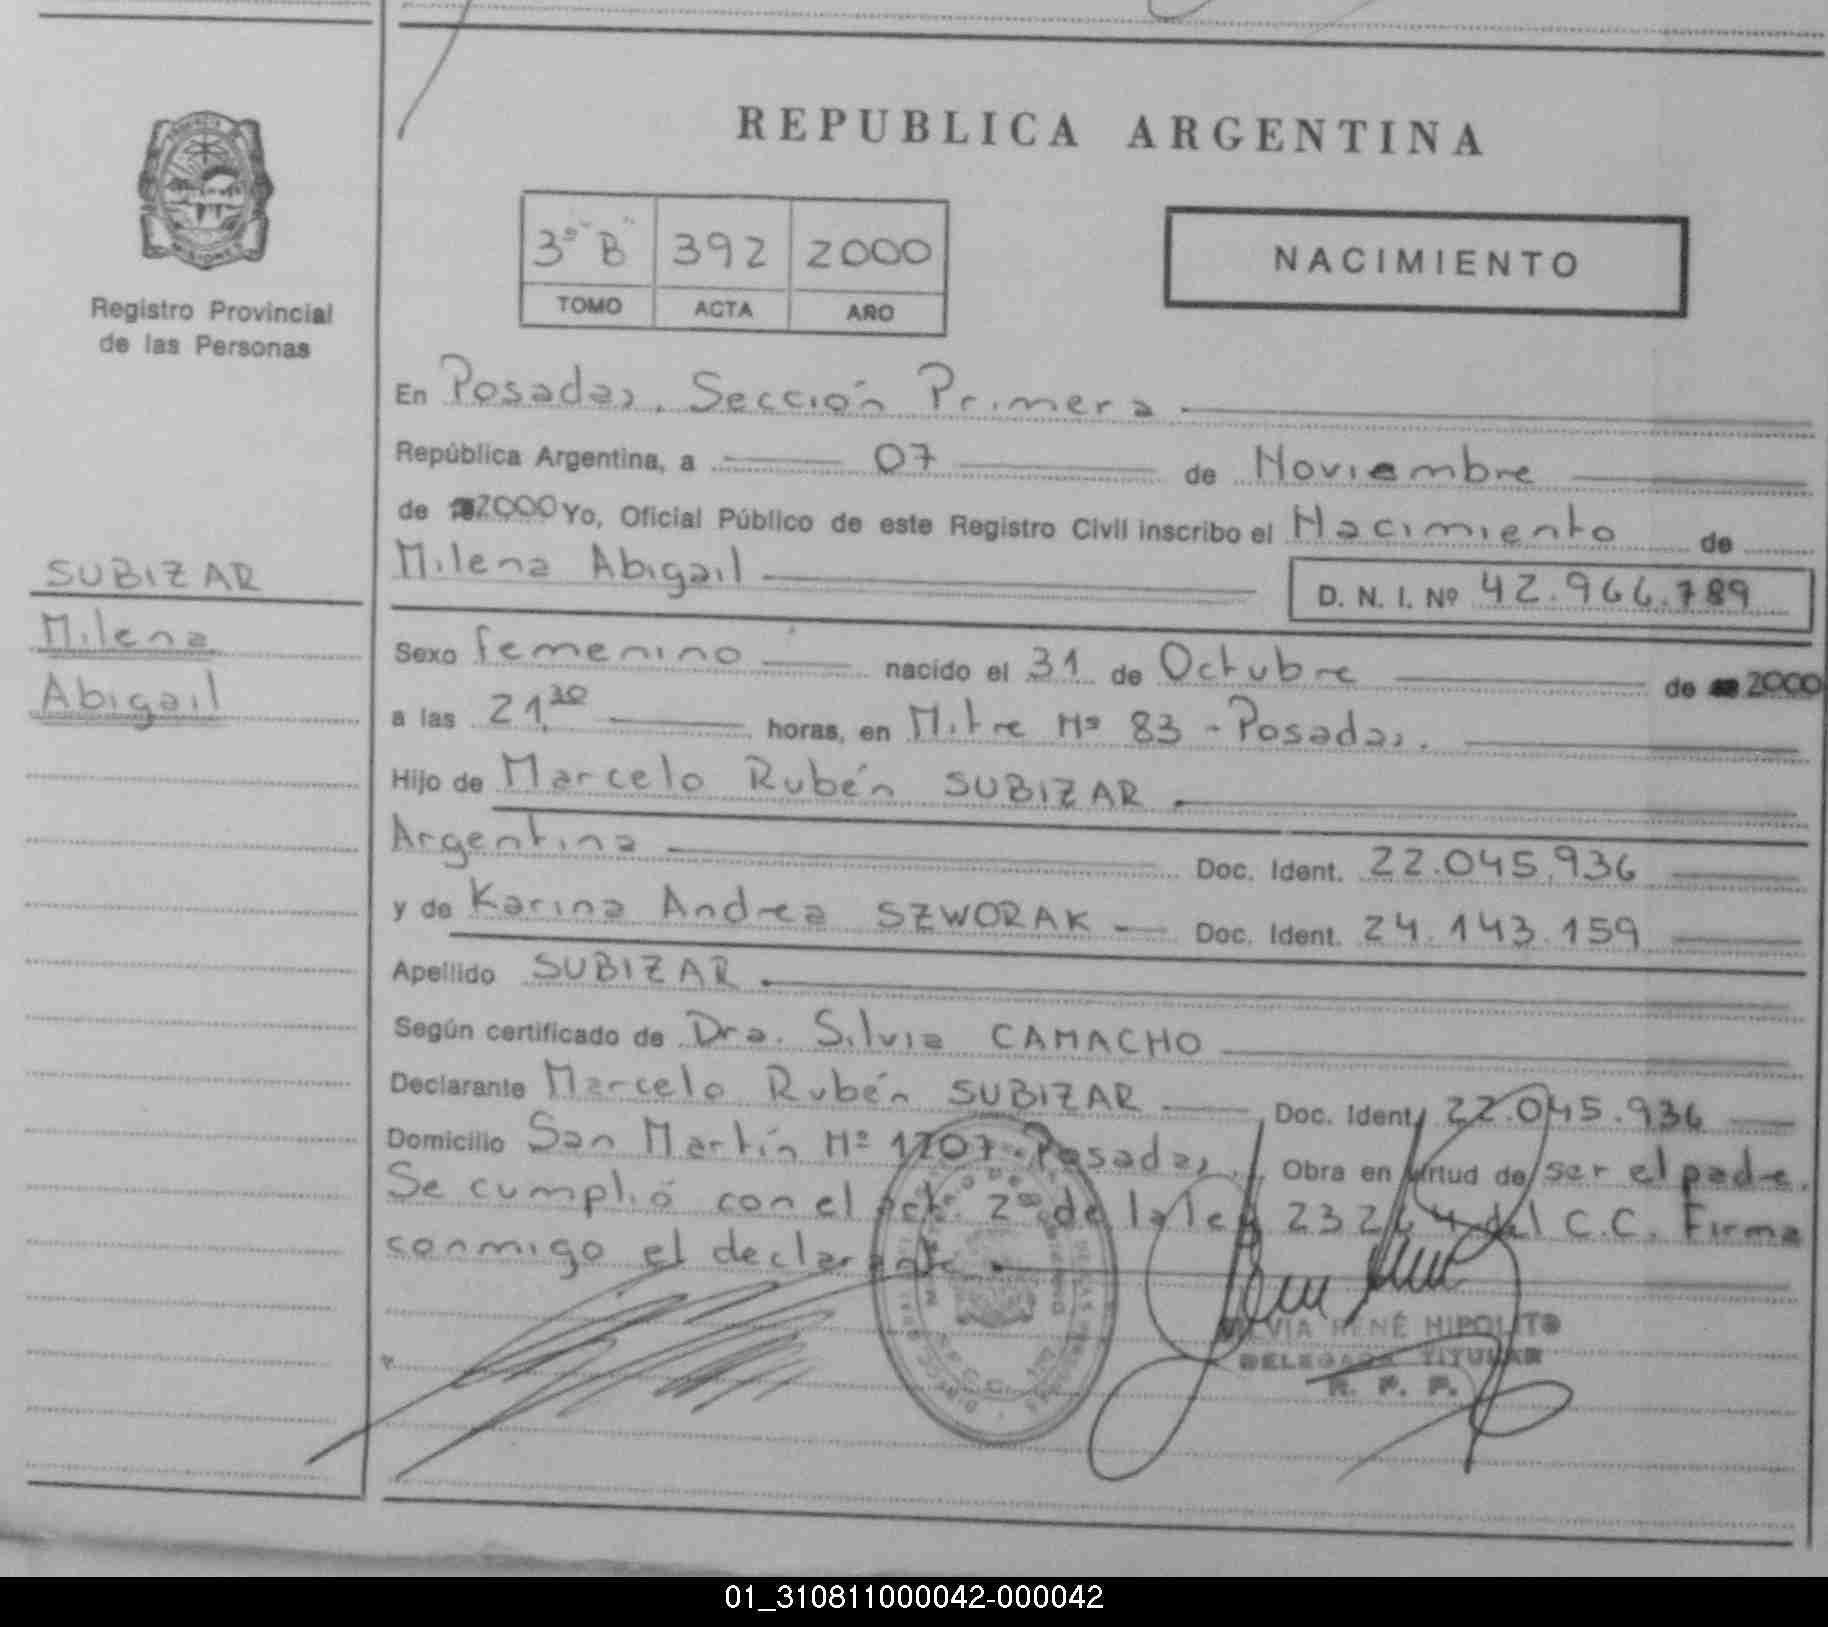 REPUBLICA ARGENTINA
3º "B" 392 2000
TOMO ACTA AÑO
NACIMIENTO
Registro Provincial
de las Personas
SUBIZAR
Milena
Abigail
En Posadas, Sección Primera
República Argentina, a 07 de Noviembre
de 2000 Yo, Oficial Público de este Registro Civil inscribo el Nacimiento de
Milena Abigail D. N. I. Nº 42.966.789
Sexo femenino nacido el 31 de Octubre de 2000
a las 21,30 horas, en Mitre Nº 83 - Posadas.
Hijo de Marcelo Rubén SUBIZAR
Argentina Doc. Ident. 22.045.936
y de Karina Andrea SZWORAK Doc. Ident. 24.143.159
Apellido SUBIZAR
Según certificado de Dra. Silvia CAMACHO
Declarante Marcelo Rubén SUBIZAR Doc. Ident. 22.045.936
Domicilio San Martín Nº 1707 - Posadas. Obra en virtud de ser el padre.
Se cumplió con el art. 2º de la ley 23264 del C.C. Firma
conmigo el declarante
SILVIA RENÉ HIPOLITO
DELEGADA TITULAR
R. P. P.
01_310811000042-000042